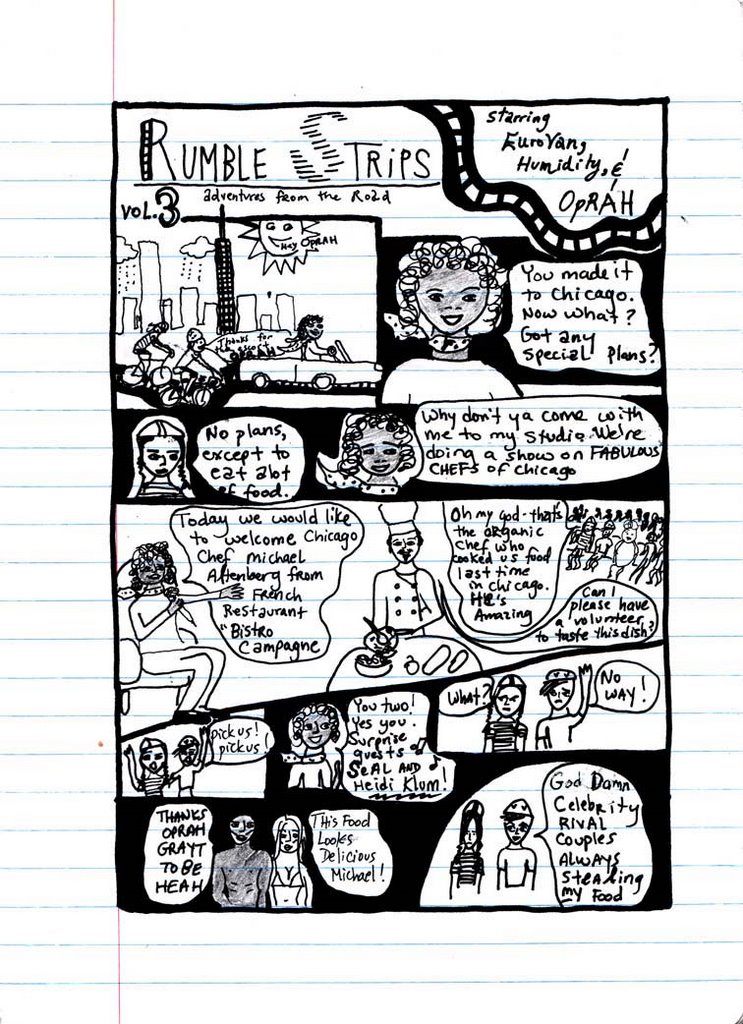 RUMBLE STRIPS
adventures from the Road
VOL. 3
Starring
EuroVan,
Humidity, &
OpRAH
Hey OpRAH
Thanks for
the escort
OPRAH
You made it
to Chicago.
Now what?
Got any
special plans?
No plans,
except to
eat alot
of food.
Why don't ya come with
me to my studio. We're
doing a show on FABULOUS
CHEFS of Chicago
Today we would like
to welcome Chicago
Chef Michael
Altenberg from
French
Restaurant
"Bistro
Campagne
Oh my god-that's
the organic
Chef who
cooked us food
last time
in Chicago.
He's
Amazing
Can I
please have
a volunteer
to taste this dish?
pick us!
pick us!
You two!
Yes you.
Surprise
guests
SEAL AND
Heidi Klum!
What?
No
WAY!
THANKS
OPRAH
GRAYT
TO BE
HEAH
This Food
Looks
Delicious
Michael!
God Damn
Celebrity
RIVAL
Couples
ALWAYS
Stealing
my Food